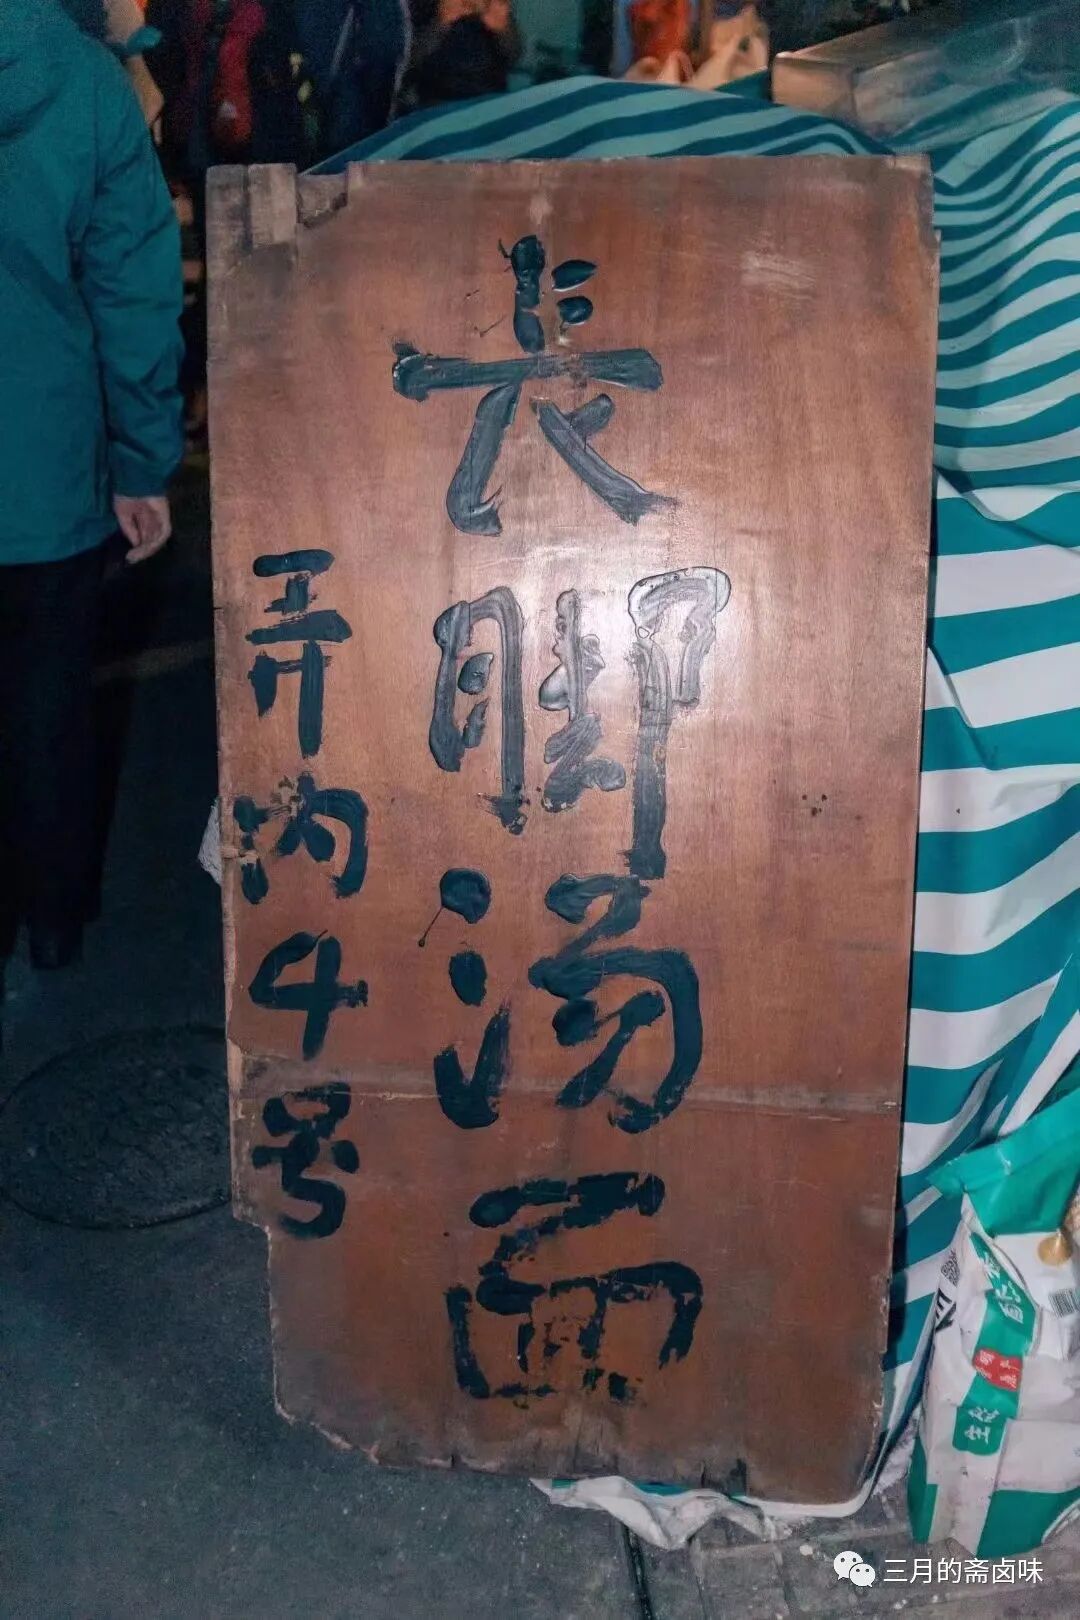 長脚汤面
弄内4号
生态
三月的斋卤味